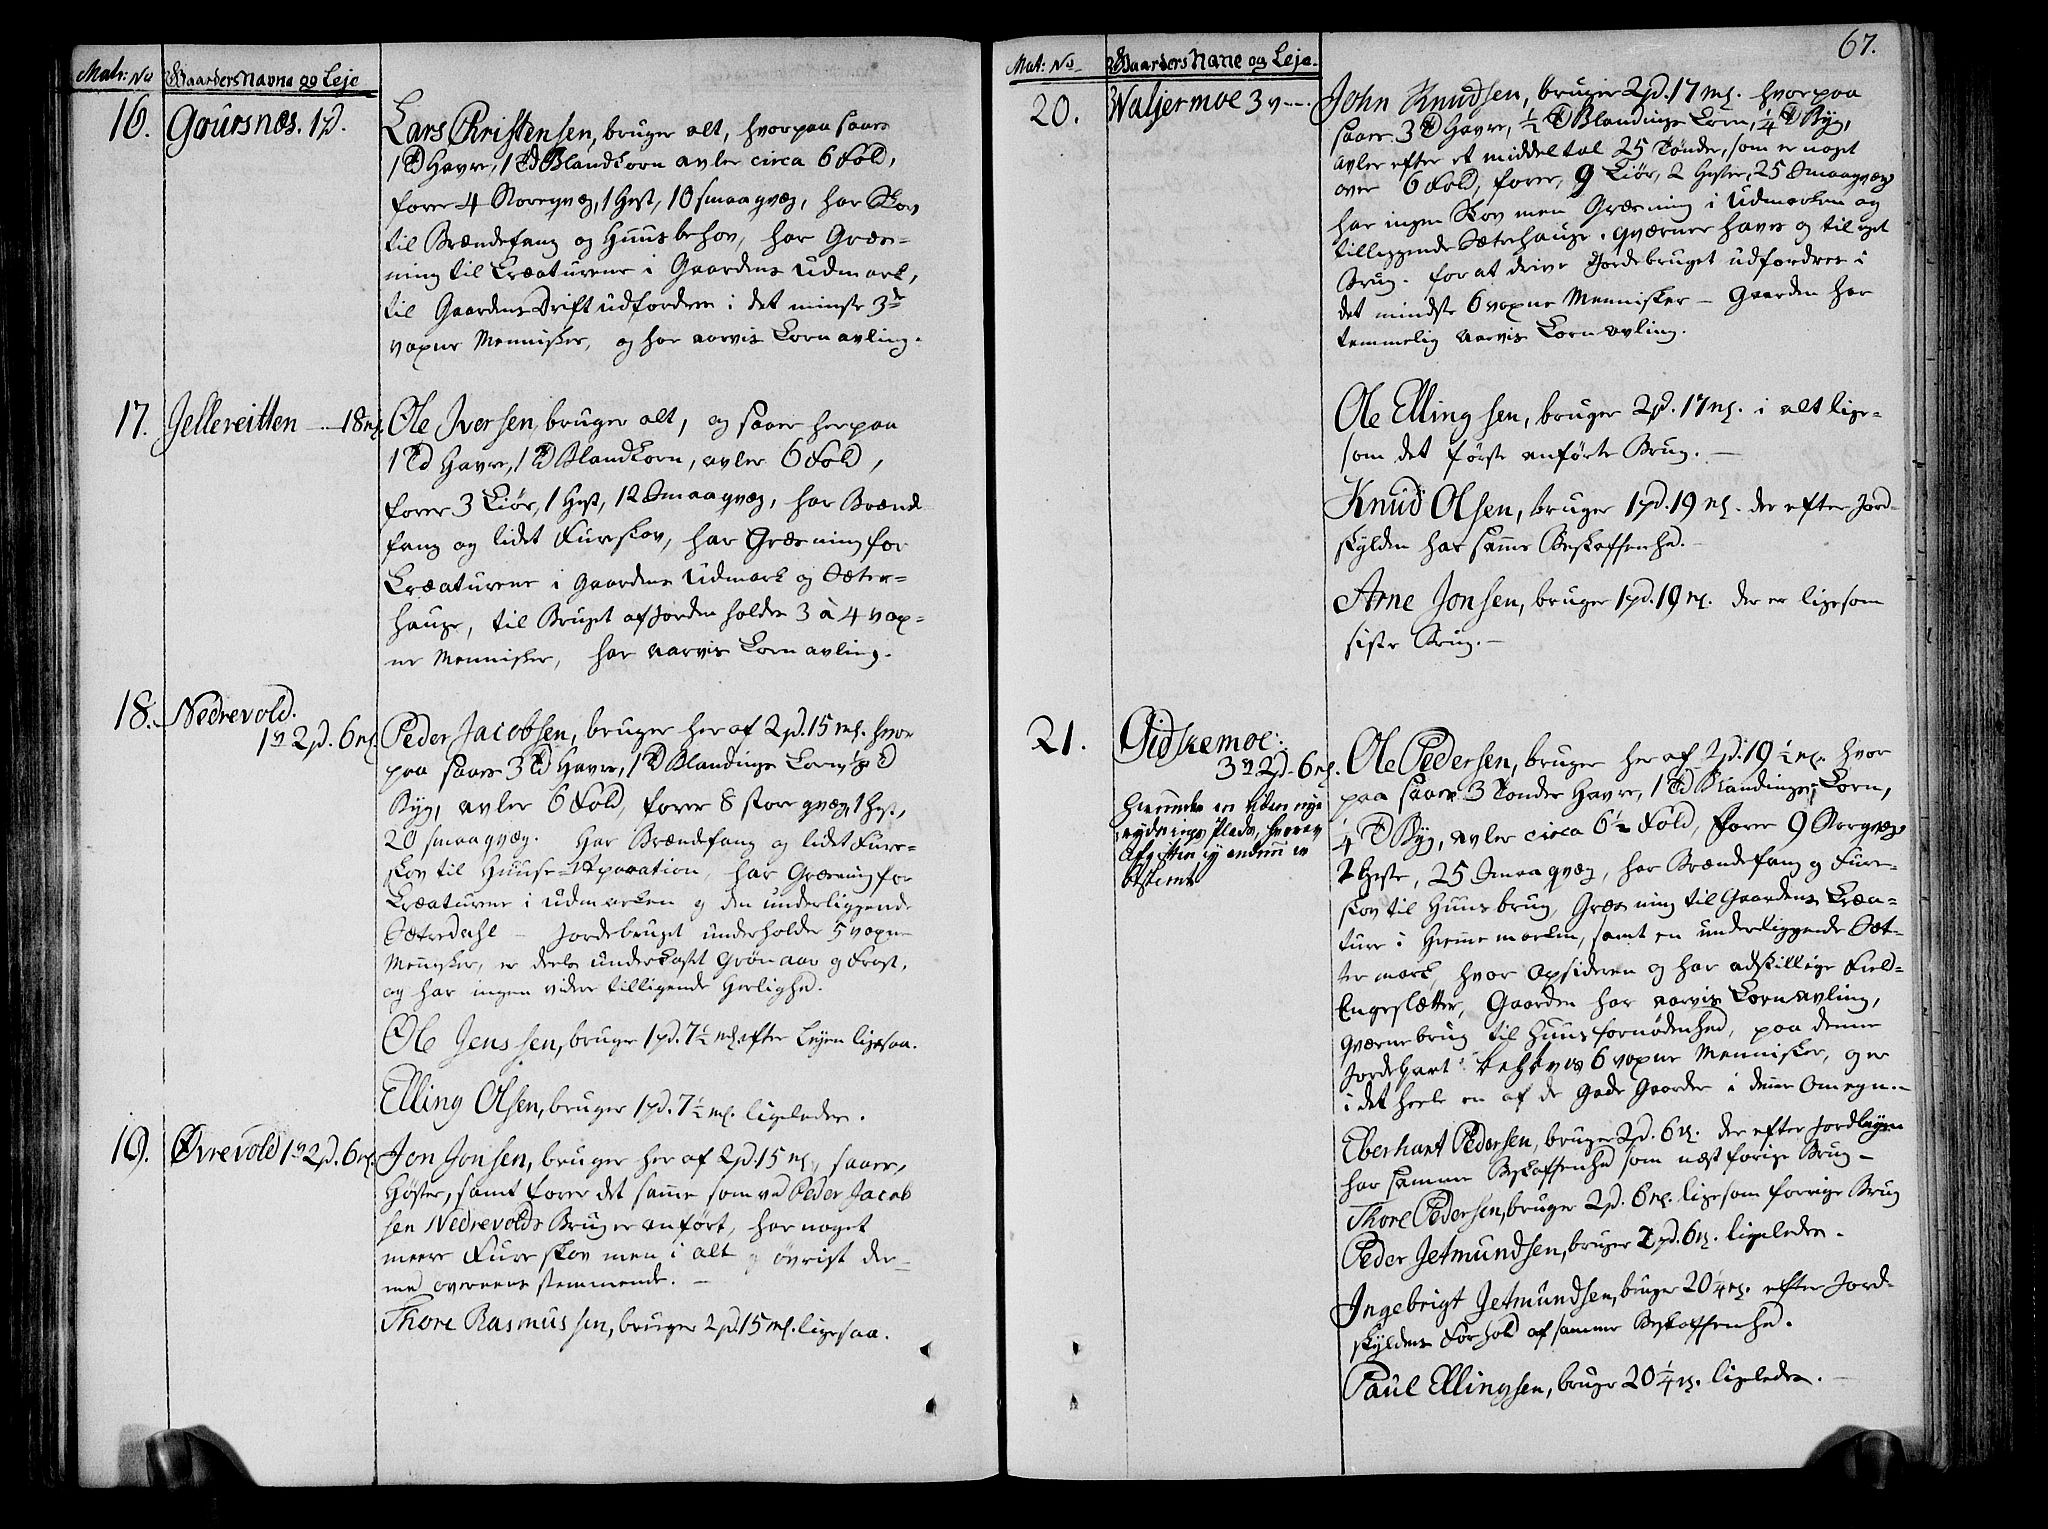 Matr: No Gaarders Navne og Leje
16. Goursnæs. 1 pd.
Lars Christensen, bruger alt, hvorpaa saaes
1 Td Havre, 1 Td Blandkorn avler circa 6 Fold,
foder 4 Storeqvæg, 1 Hest, 10 smaaqvæg, har Skov
til Brændefang og Huusbehov, har Græs-
ning til Creaturene i Gaardens Udmark,
til Gaardens Drift udfordres i det minste 3de
voxne Mennisker, og har aarvis Kornavling.
17. Jellereitten 18 mk.
Ole Iversen, bruger alt, og saaer herpaa
1 Td Havre, 1 Td Blandkorn, avler 6 Fold,
foder 3 Kiør, 1 Hest, 12 Smaaqvæg, har Brænde
fang og lidet Furuskov, har Græsning for
Creaturene i Gaardens Udmark og Sæter-
hauge, til Bruget af Jorden holdes 3 à 4 vox-
ne Mennisker, har aarvis Kornavling.
18. Nedrevold.
1 v 2 pd. 6 mk.
Peder Jacobsen, bruger her af 2 pd. 15 mk. hvor
paa saaes 3 Td Havre, 1 Td Blandings Korn, 1/8 Td
Byg, avler 6 Fold, foder 8 store qvæg, 1 Hest,
20 smaaqvæg. Har Brændefang og lidet Furu-
skov til Huuse-Reparation, har Græsning for
Creaturene i Udmarken og den underliggende
Sætredahl — Jordebruget underholder 5 voxne
Mennisker, er deels underkastet Grønaar og Frost,
og har ingen videre tilligende Herlighed.
Ole Jenssen, bruger 1 pd. 7 1/2 mk. efter Lejen ligesaa.
Elling Olsen, bruger 1 pd. 7 1/2 mk. ligeledes.
19. Øvrevold 1 v 2 pd. 6 mk.
Jon Jonsen, bruger her af 2 pd 15 mk, saaer,
Høster, samt foder det samme som ved Peder Jacob
sen Nedrevolds Brug er anført, har noget
meere Furu skov men i alt og øvrigt der-
med overeensstemmende. —
Thore Rasmussen, bruger 2 pd. 15 mk. ligesaa.
67.
Mat: No Gaarders Nane og Leje.
20. Waljermoe 3 v —
John Knudsen, bruger 2 pd. 17 mk. hvorpaa
saaes 3 Td Havre, 1/2 Td Blandings Korn, 1/4 Td Byg,
avler efter et middeltal 25 Tønder, som er noget
over 6 Fold, foder, 9 Kiør, 2 Hester, 25 Smaaqvæg
har ingen Skov men Græsning i Udmarken og
tilliggende Sæterhauge. qværner haves og til eget
Brug. for at drive Jordebruget udfordres i
det mindste 6 voxne Mennisker — Gaarden har
temmelig aarvis Kornavling.
Ole Ellingsen, bruger 2 pd. 17 mk. i alt lige-
som det første anførte Brug. —
Knud Olsen, bruger 1 pd. 19 mk. der efter Jord-
skylden har samme Beskaffenhed. —
Arne Jonsen, bruger 1 pd. 19 mk. der er ligesom
siste Brug. —
21. Gidskemoe.
3 v 2 pd. 6 mk.
Herunder en liden nye
rydnings Plads, hvorav
Afgiften ey endnu er
bestemt
Ole Pedersen, bruger her af 2 pd. 19 1/2 mk. hvor
paa saaes 3 Tønder Havre, 1 Td Blandings-Korn,
1/4 Td Byg, avler circa 6 1/2 Fold, foder 9 Storqvæg
2 Heste, 25 Smaaqvæg, har Brændefang og Furu-
skov til Huusbrug, Græsning til Gaardens Crea-
ture i Hiemmemarken, samt en underliggende Sæt-
termark, hvor Opsidderen og har adskillige Field-
Engeslætter, Gaarden har aarvis Kornavling,
Qværnebrug til Huusfornødenhed, paa denne
Jordepart behøves 6 voxne Mennisker, og er
i det heele en af de gode Gaarder i denne Omegn. —
Eberhart Pedersen, bruger 2 pd. 6 mk. der efter Jordlejen
har samme Beskaffenhed som næst forige Brug —
Thore Pedersen, bruger 2 pd. 6 mk. ligesom forrige Brug
Peder Jetmundsen, bruger 2 pd. 6 mk. ligeledes.
Ingebrigt Jetmundsen, bruger 20 1/4 mk. efter Jord-
skyldens Forhold af samme Beskaffenhed.
Paul Ellingsen, bruger 20 1/4 mk. ligeledes. —